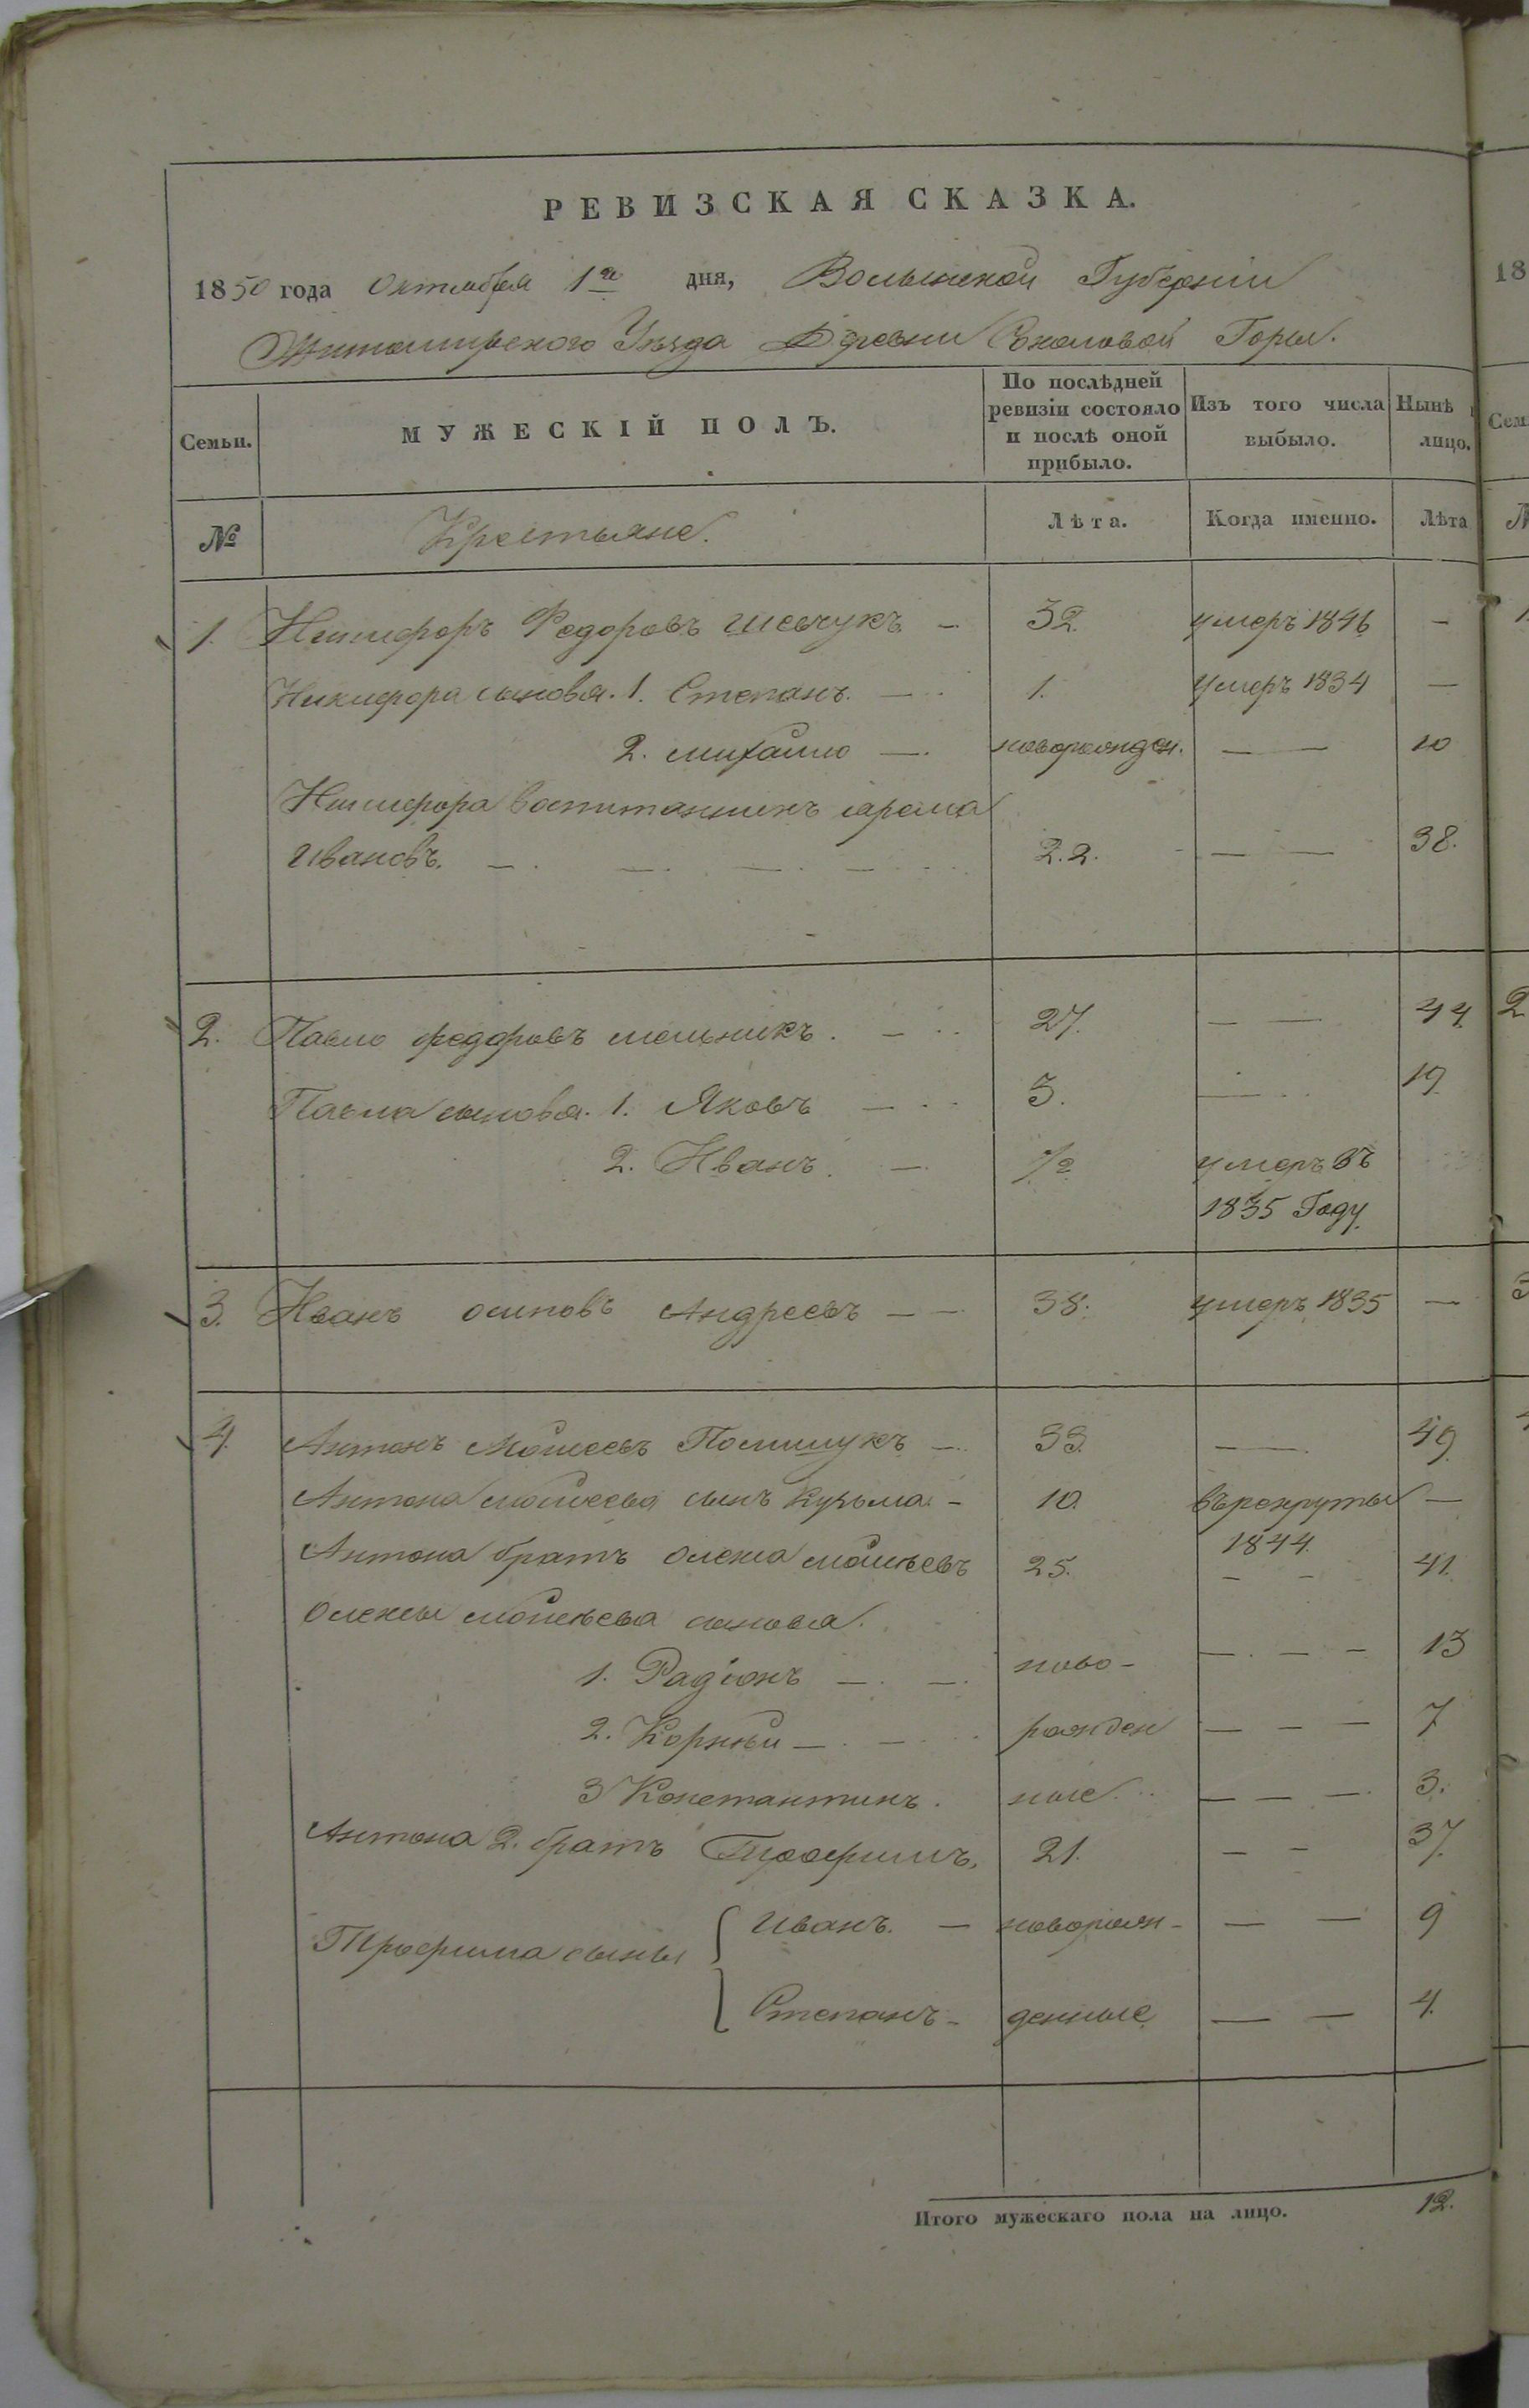 РЕВИЗСКАЯ СКАЗКА.
1850 года Октября 1го дня, Волынской Губерніи
Житомирского Уѣзда Деревни Соколовой Горы.
Семьи. МУЖЕСКІЙ ПОЛЪ. По послѣдней ревизіи состояло и послѣ оной прибыло. Изъ того числа выбыло. Нынѣ лицо.
№ Крестьяне. Лѣта. Когда именно. Лѣта
1. Никифоръ Федоровъ Шевчукъ — 32. умеръ 1846 —
Никифора сыновья. 1. Степанъ. — 1. умеръ 1834 —
2. Михайло — новорожден. — — 10
Никифора воспитанникъ Ярема
Ивановъ. — 22. — — 38.
2. Павло Федоровъ Мельникъ. — 27. — — 44.
Павла сыновья. 1. Яковъ — 3. — 19.
2. Иванъ. — 1/2 умеръ въ
1835 Году
3. Иванъ Осиповъ Андреевъ — — 38. умеръ 1835 —
4. Антонъ Мойсеевъ Полищукъ — 33. — — 49.
Антона Мойсеева сынъ Кузьма. — 10. въ рекруты —
1844.
Антона братъ Олекса Мойсѣевъ 25. — — 41.
Олексы Мойсѣева сыновья.
1. Радіонъ — — ново- — — — 13
2. Корнѣй — — рожден — — — 7
3 Константинъ. ные — — — 3.
Антона 2. братъ Трофимъ, 21. — — 37.
Трофима сыны { Иванъ. — новорож- — — 9
Степанъ — денные — — 4.
Итого мужескаго пола на лицо. 12.